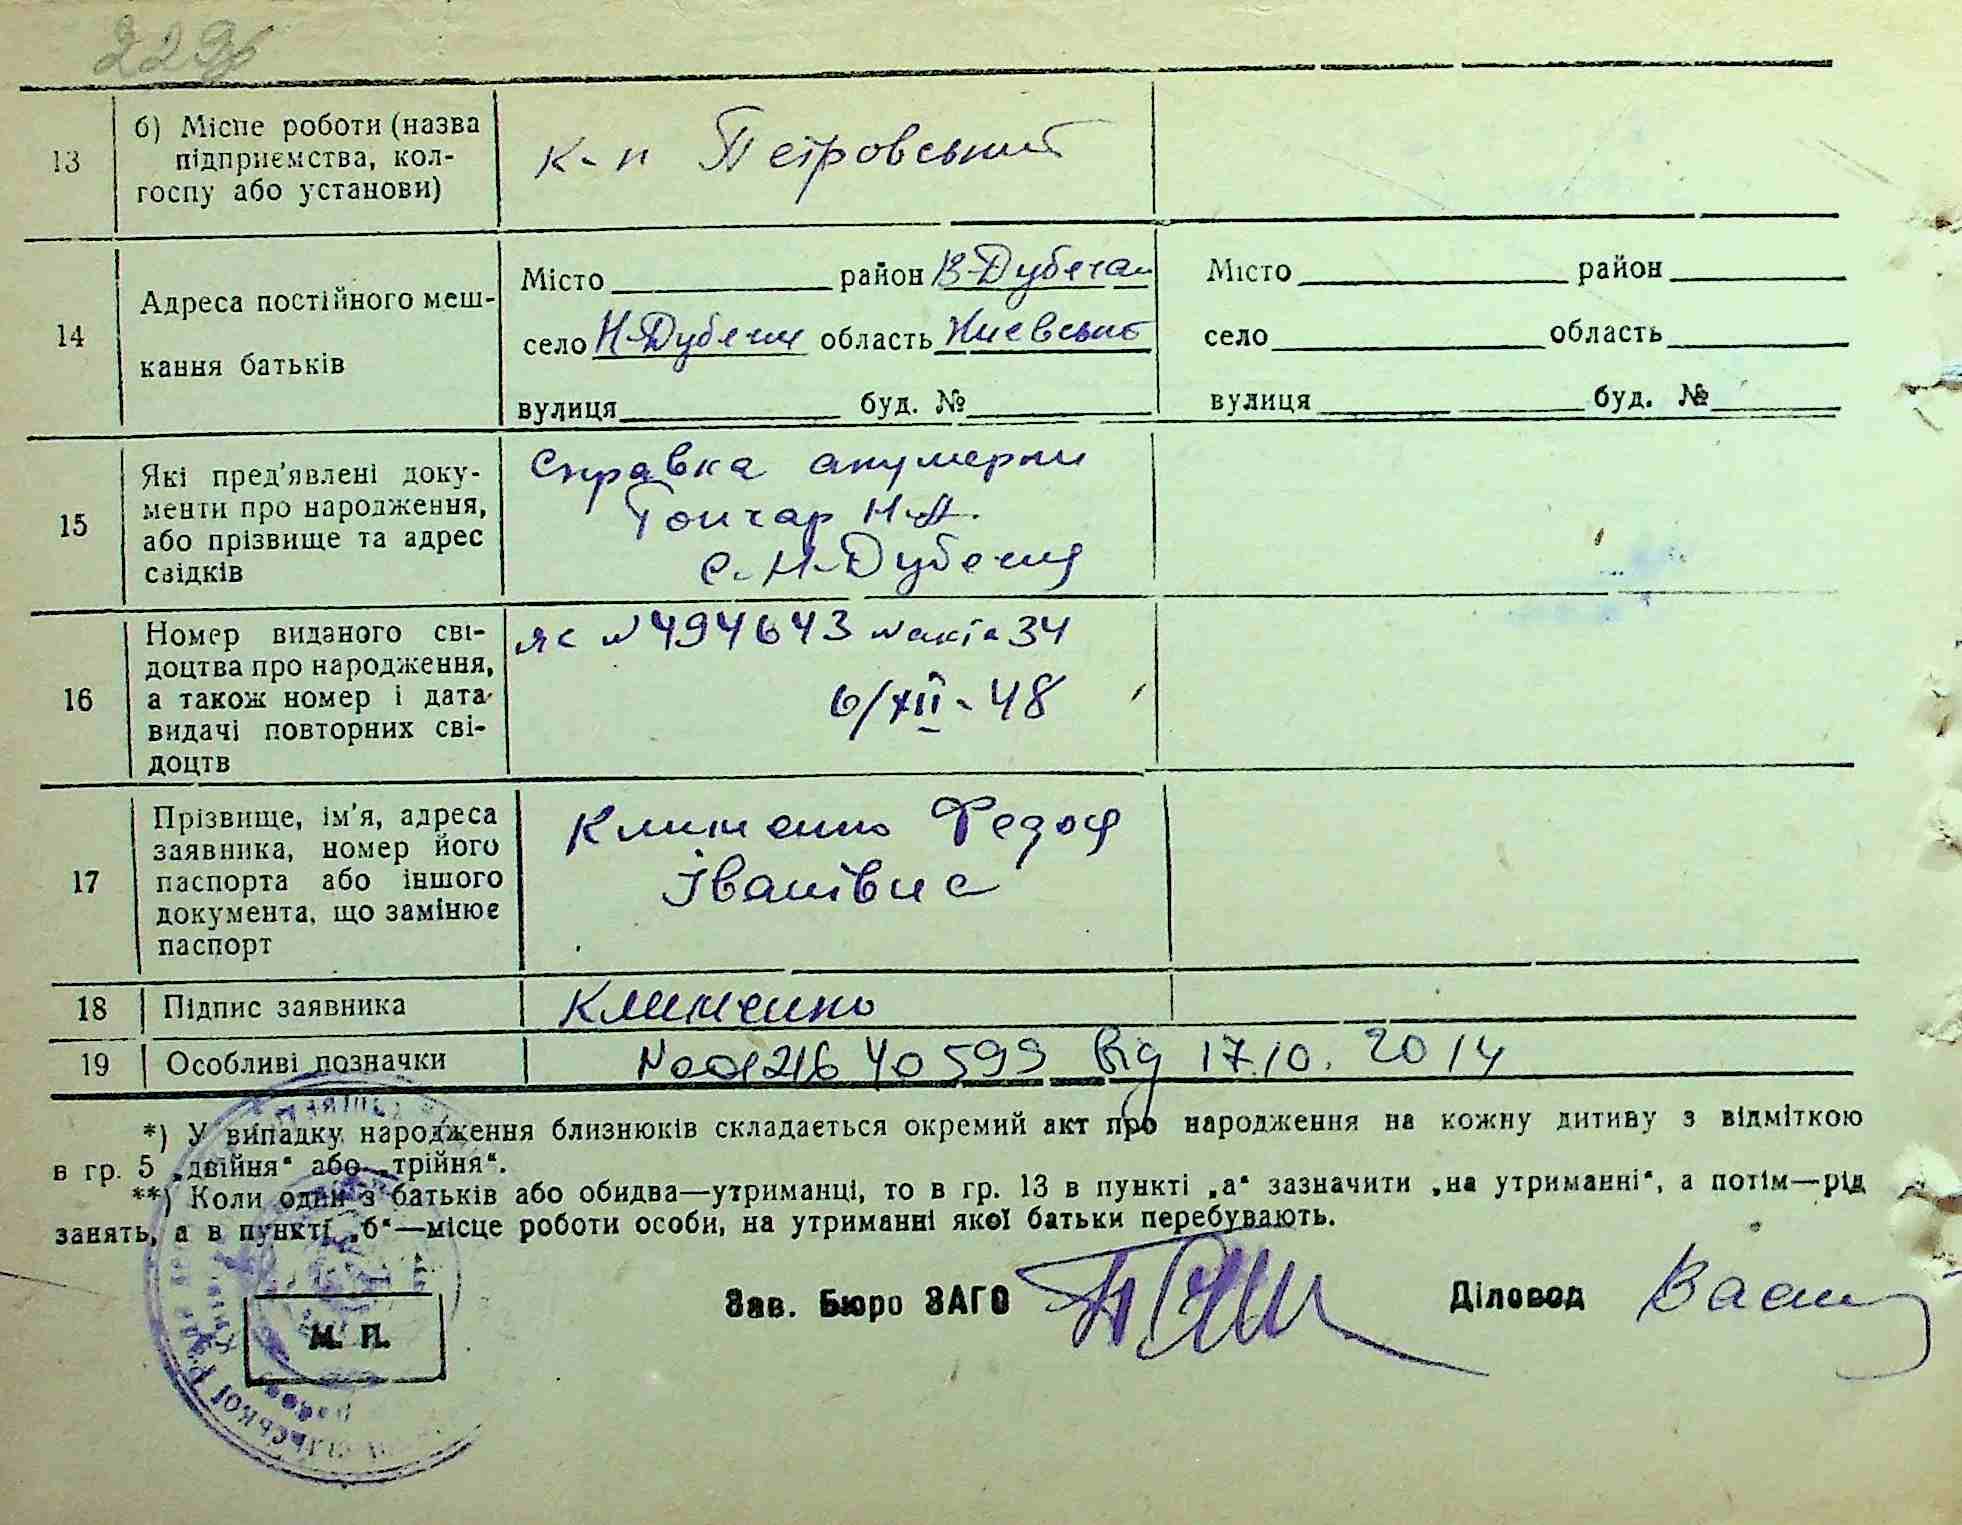 13
б) Місце роботи (назва
підприємства, кол-
госпу або установи)
к-п Петровський
14
Адреса постійного меш-
кання батьків
Місто район В-Дубечан
село Н-Дубечня область Києвська
вулиця буд. №
Місто район
село область
вулиця буд. №
15
Які пред'явлені доку-
менти про народження,
або прізвище та адрес
свідків
Справка акушерки
Гончар Н.А.
с. Н-Дубечня
16
Номер виданого сві-
доцтва про народження,
а також номер і дата
видачі повторних сві-
доцтв
ЯС № 494643 № акта 34
6/XII - 48
17
Прізвище, ім'я, адреса
заявника, номер його
паспорта або іншого
документа, що замінює
паспорт
Клименко Федор
Іванівис
18
Підпис заявника
Клименко
19
Особливі позначки
№00121640599 від 17.10.2014
*) У випадку народження близнюків складається окремий акт про народження на кожну дитину з відміткою
в гр. 5 „двійня“ або „трійня“.
**) Коли один з батьків або обидва—утриманці, то в гр. 13 в пункті „а“ зазначити „на утриманні“, а потім—рід
занять, а в пункті „б“—місце роботи особи, на утриманні якої батьки перебувають.
Зав. Бюро ЗАГС
Діловод
М. П.